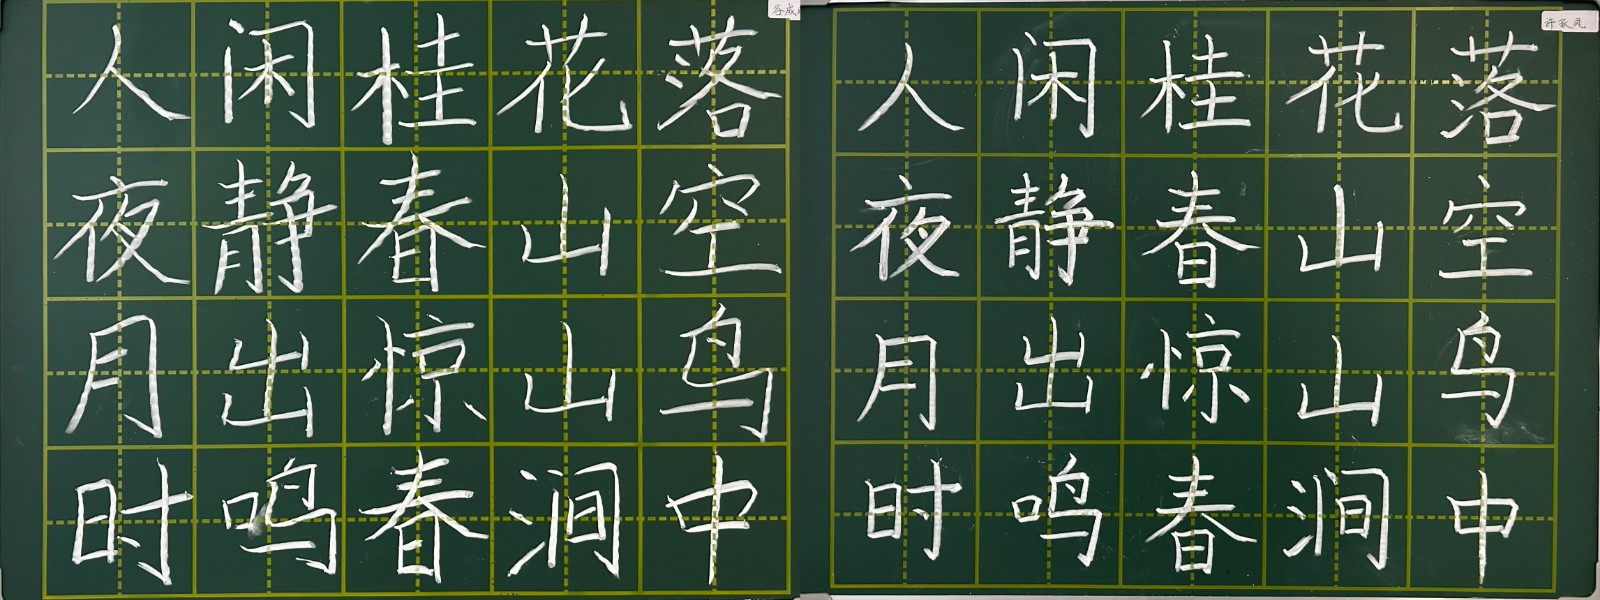 人闲桂花落
夜静春山空
月出惊山鸟
时鸣春涧中
人闲桂花落
夜静春山空
月出惊山鸟
时鸣春涧中